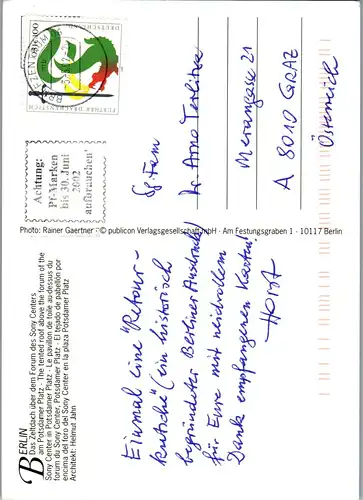 BERLIN
Das Zeltdach über dem Forum des Sony Centers
am Potsdamer Platz · The tented roof above the forum of the
Sony Center in Potsdamer Platz · Le pavillon de toile au-dessus du
forum du Sony Center, Potsdamer Platz · El tejado de pabellón por
encima del foro del Sony Center en la plaza Potsdamer Platz
Architekt: Helmut Jahn
Einmal eine "Retour-
kutsche" (ein historisch
begründeter Berliner Ausdruck)
für Eure mit neidvollem
Dank empfangenen Karten!
Horst
Photo: Rainer Gaertner · © publicon Verlagsgesellschaft mbH · Am Festungsgraben 1 · 10117 Berlin
Achtung:
Pf-Marken
bis 30. Juni
2002
aufbrauchen!
FURTHER DRACHENSTICH
100
BRIEFZENTRUM
Fam
Dr. Arno
Merangasse 21
A 8010 GRAZ
Österreich